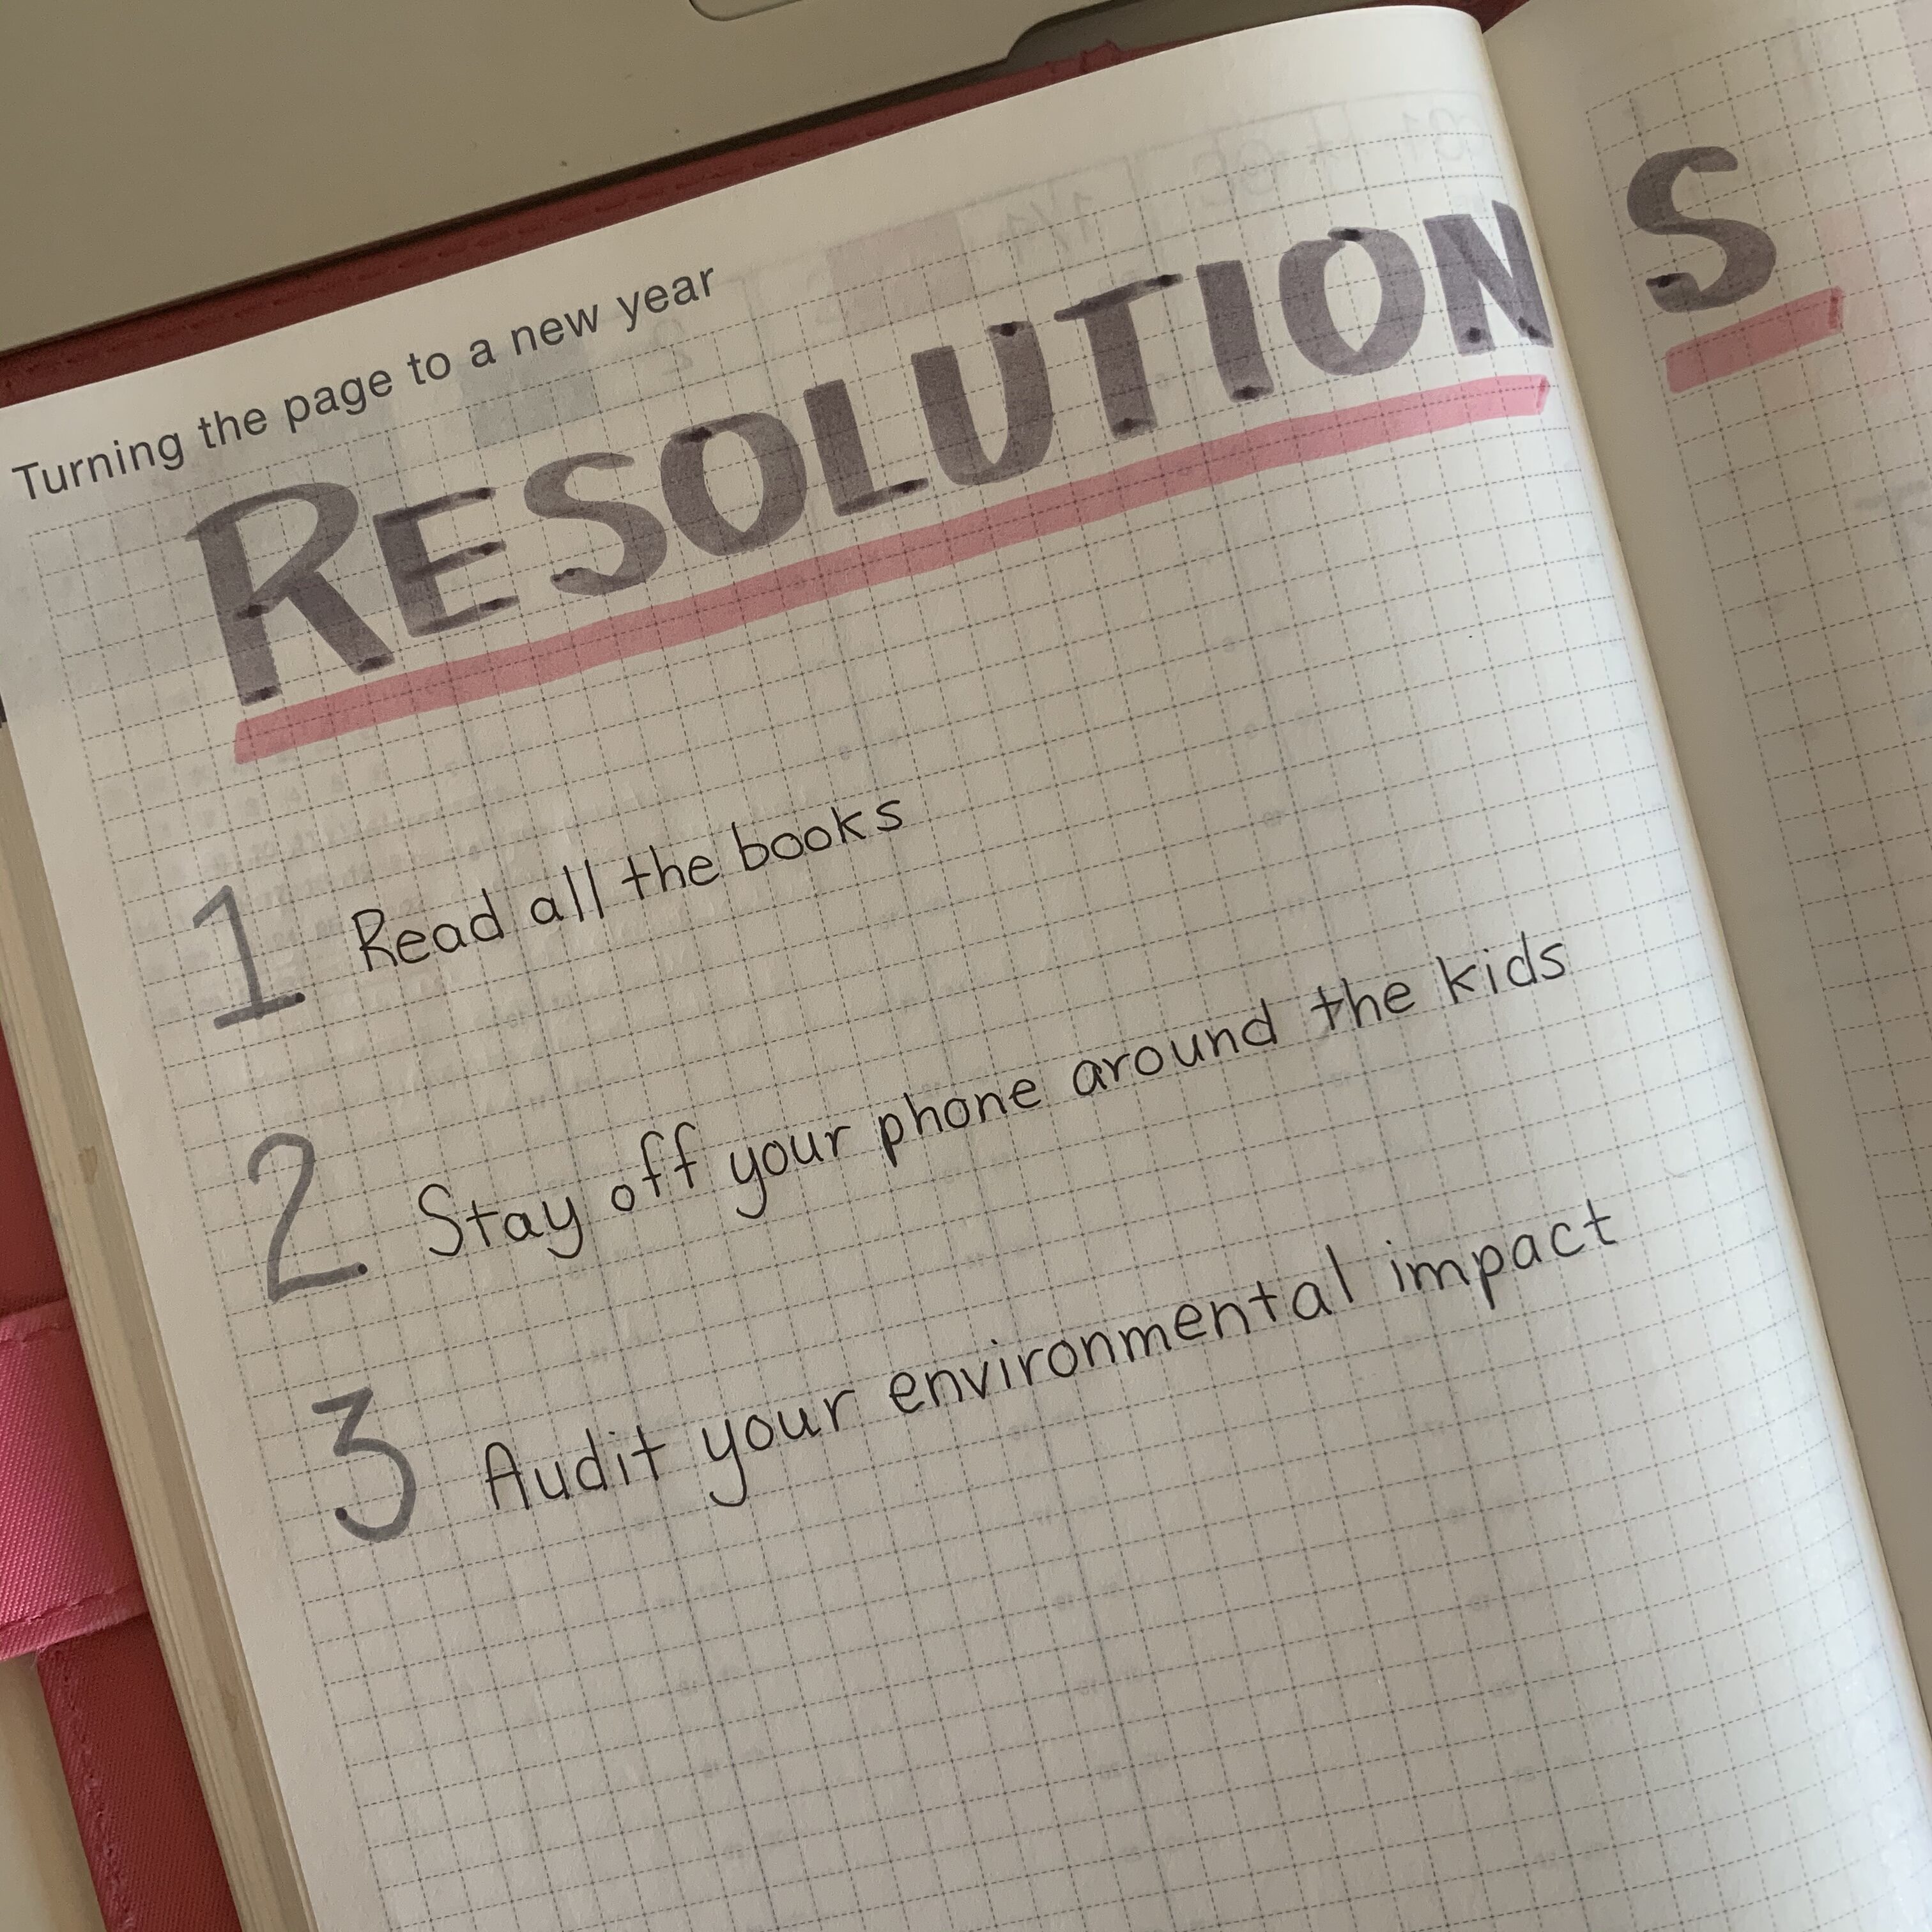 Turning the page to a new year
RESOLUTIONS
1 Read all the books
2 Stay off your phone around the kids
3 Audit your environmental impact